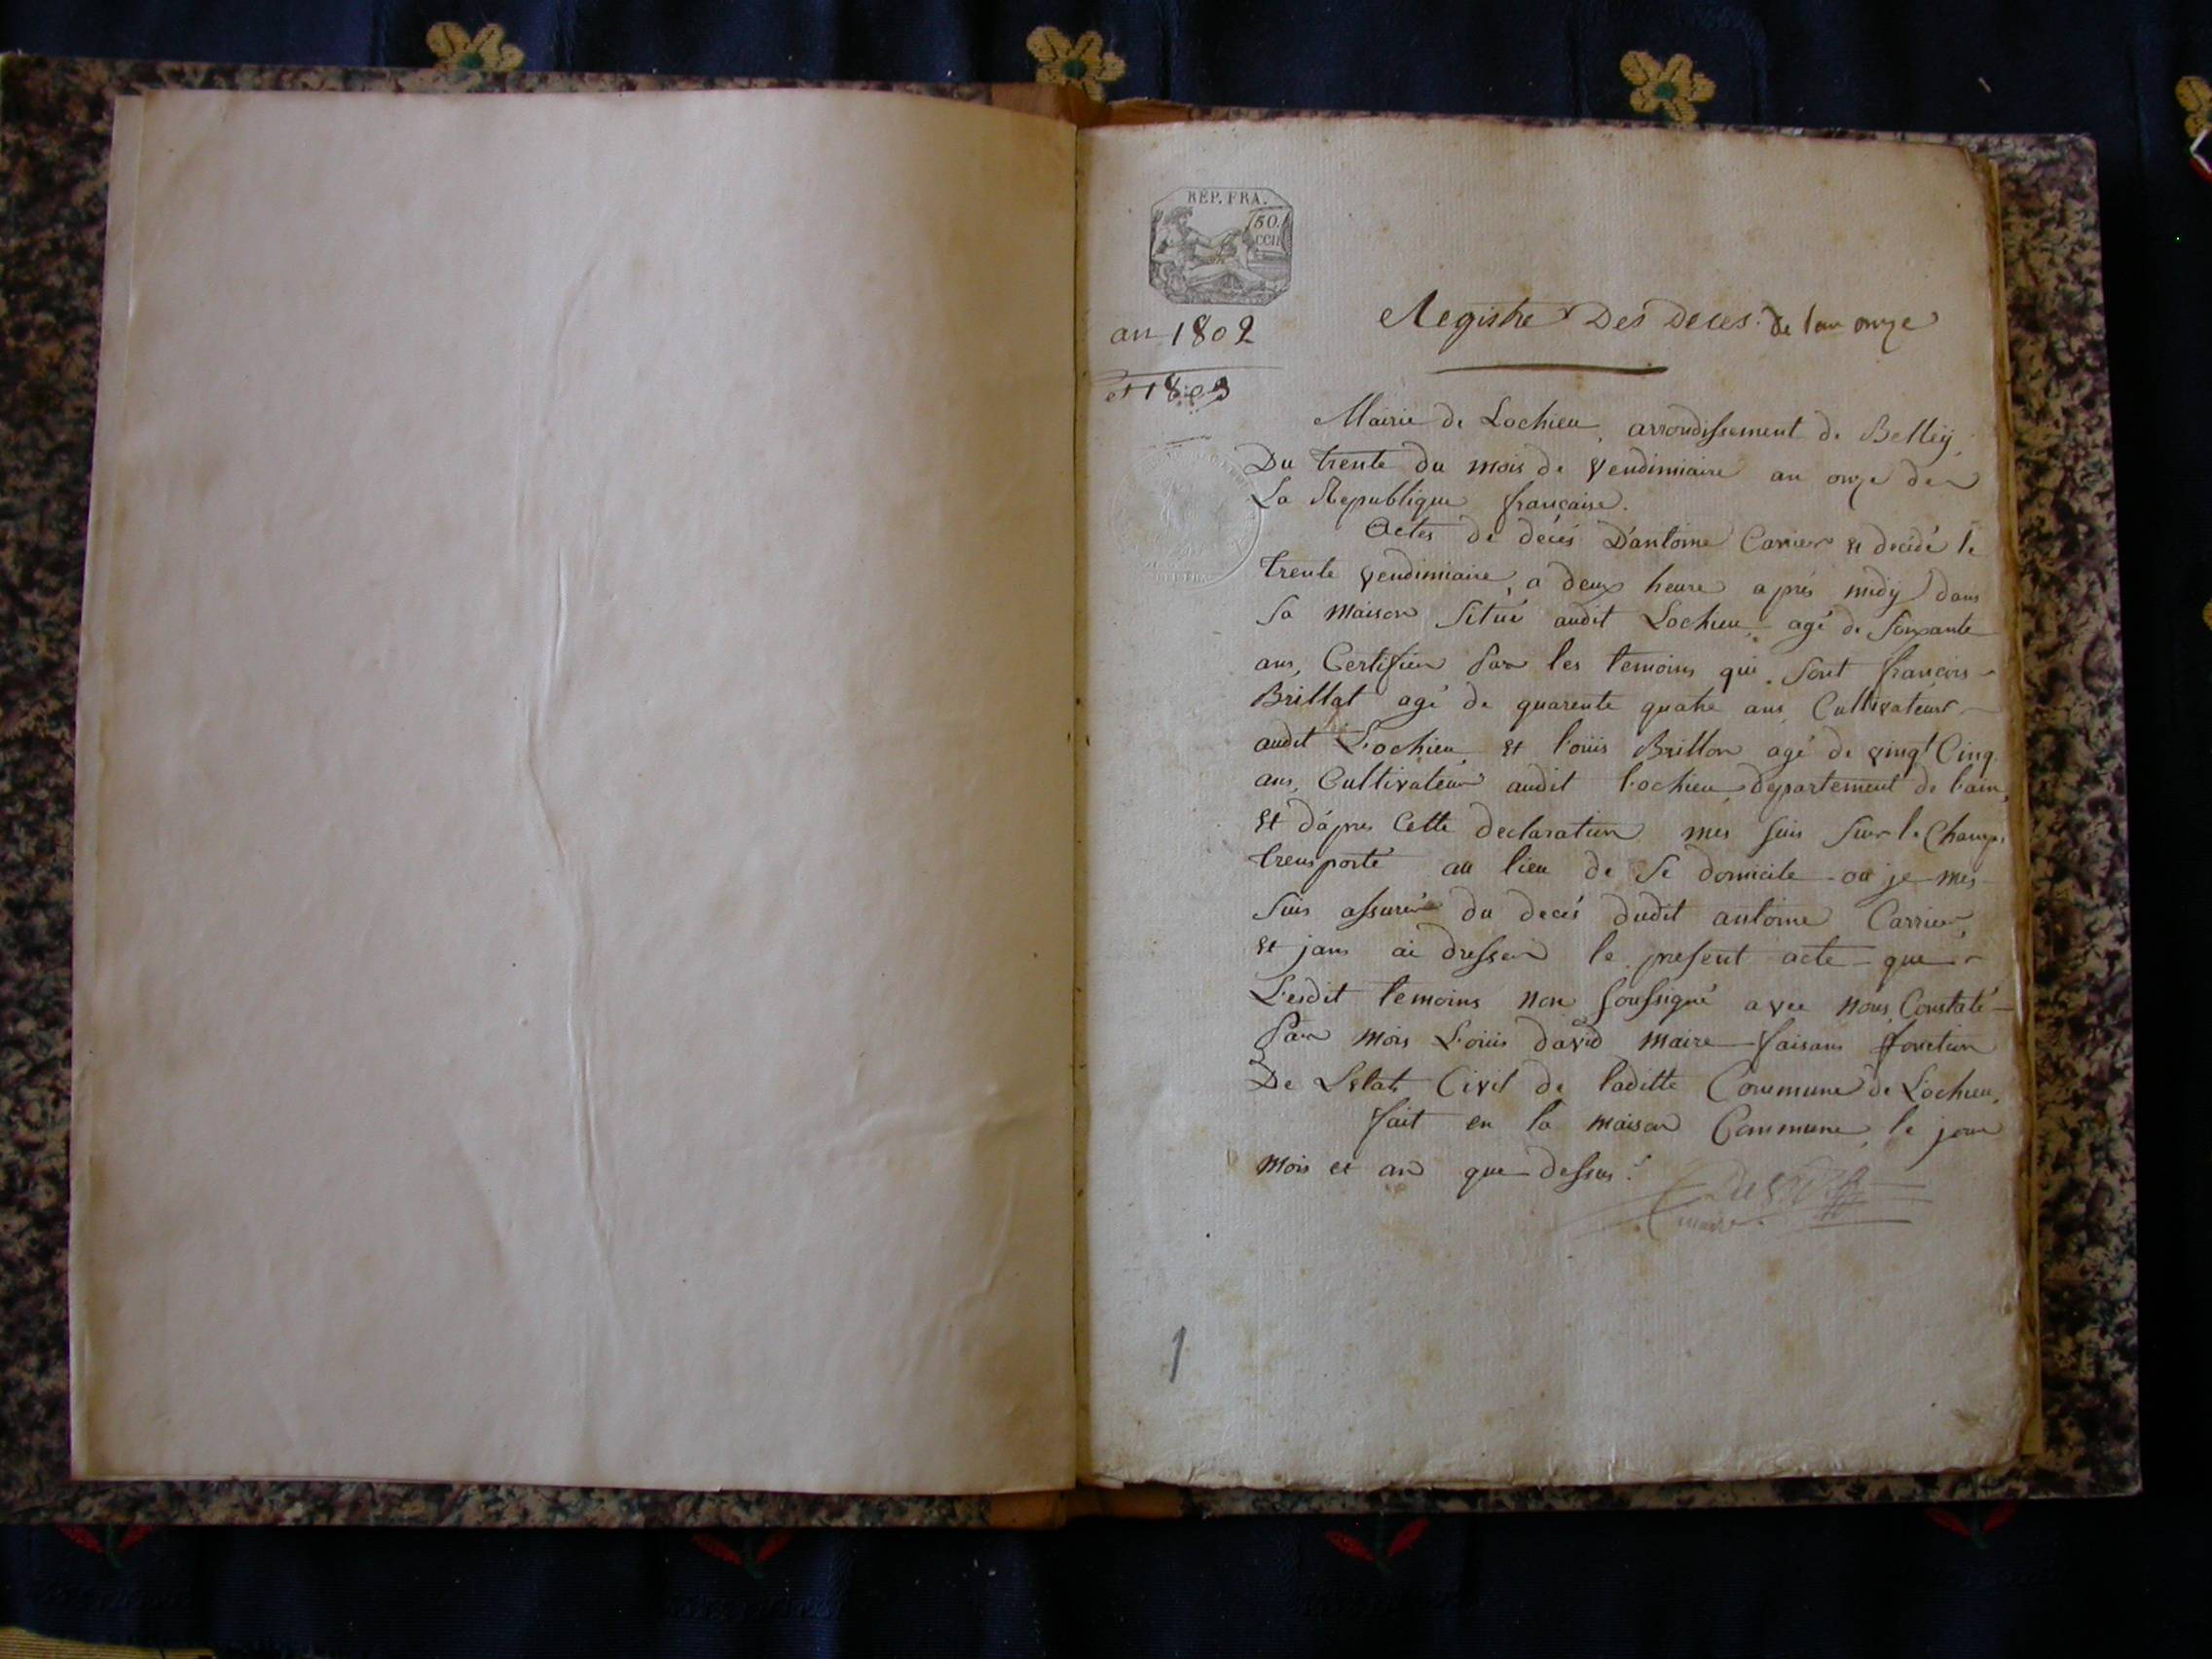 RÉP. FRA.
50.
CCII
an 1802
et 1803
Registre Des Deces. de lan onze
Mairie de Lochieu, arrondissement de Belley,
Du trente du mois de Vendimiaire an onze de
La Republique française.
Actes de décés D'antoine Carrier et décédé le
trente vendimiaire, a deux heure aprés midy dans
sa maison Situé audit Lochieu, agé de Soixante
ans, Certifier par les temoins qui Sont françois
Brillat agé de quarente quatre ans Cultivateur
audit Lochieu et Loüis Brillon agé de vingt Cinq
ans, Cultivateur audit Lochieu, departement de Lain,
Et d'áprés Cette declaration mes suis Sur le Champs
trensporté au lieu de Se domicile ou je mes
Suis assurér du decés dudit antoine Carrier,
et jans ai dresser le present acte que
Lesdit temoins non soussigné avec nous, Constaté
Par mois Loüis david maire faisans fonction
De Letat Civil de laditte Commune de Lochieu,
fait en la maison Commune, le jour
mois et an que dessus.
maire
1